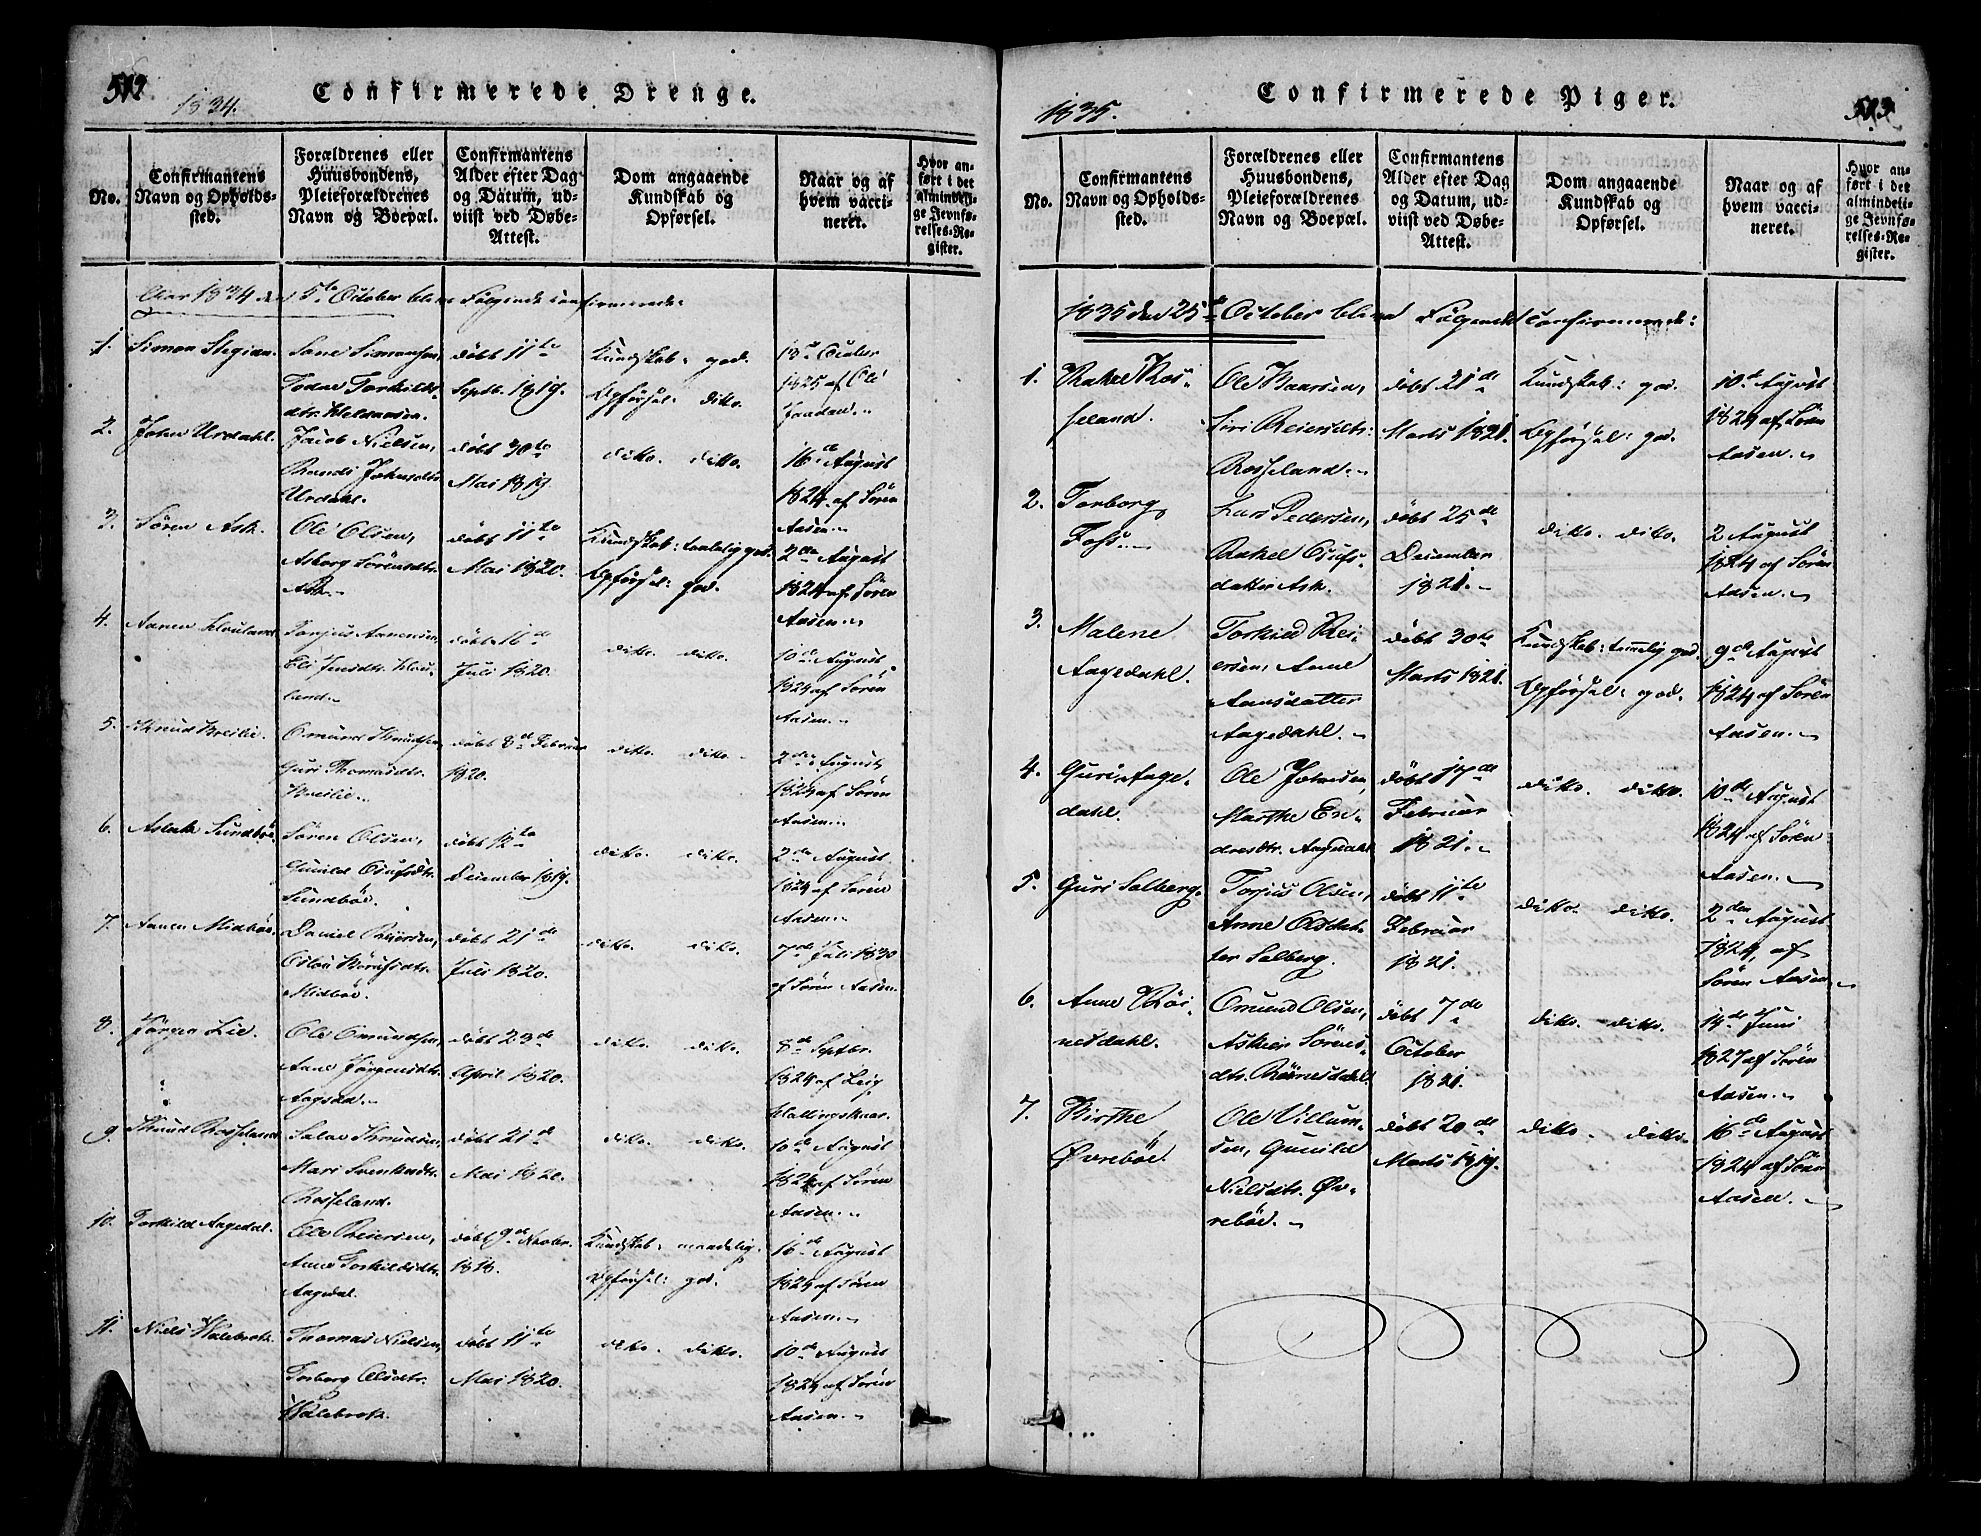 1834.
Confirmerede Drenge.
No.
Confirmantens
Navn og Opholds-
sted.
Forældrenes eller
Huusbondens,
Pleieforældrenes
Navn og Boepæl.
Confirmantens
Alder efter Dag
og Datum, ud-
viist ved Døbe-
Attest.
Dom angaaende
Kundskab og
Opførsel.
Naar og af
hvem vacci-
neret.
Hvor an-
ført i det
almindeli-
ge Jevnfø-
relses-Re-
gister.
Aar 1834 den 5te October bleve Følgende confirmerede:
1.
Simon
Simonsen,
Torkilds-
døbt 11te
Septb. 1819.
Kundskab: god.
Opførsel: ditto.
18de October
1825 af Ole
2.
John Urdahl.
Jacob Nielsen,
Randi Johnsdtr.
Urdahl.
døbt 30te
Mai 1819.
ditto. ditto.
16de August
1824 af Søren
Aasen.
3.
Søren Ask.
Ole Olsen,
Asborg Sørensdtr.
Ask.
døbt 11te
Mai 1820.
Kundskab: temmelig god.
Opførsel: god.
2den August
1824 af Søren
Aasen.
4.
Aanen
Torjus Aanensen,
Eli Jensdtr.
land.
døbt 16de
Juli 1820.
ditto. ditto.
10de August
1824 af Søren
Aasen.
5.
Knud Breilie.
Omund Knudsen,
Guri Thomasdtr.
Breilie.
døbt 8de Februar
1820.
ditto. ditto.
2den August
1824 af Søren
Aasen.
6.
Aslak Sundbøe.
Søren Olsen,
Gunild Osufsdtr.
Sundbøe.
døbt 12te
December 1819.
ditto. ditto.
2den August
1824 af Søren
Aasen.
7.
Aanen Midbøe.
Daniel Reiersen,
Midbøe.
døbt 21de
Juli 1820.
ditto. ditto.
7de Juli 1830
af Søren Aasen.
8.
Jørgen Lie.
Ole Omundsen,
Anne Jørgensdtr.
døbt 23de
April 1820.
ditto. ditto.
8de Septbr.
1824 af
9.
Knud Rosseland.
Salve Knudsen,
Mari
Rosseland.
døbt 21de
Mai 1820.
ditto. ditto.
10de August
1824 af Søren
Aasen.
10.
Torkild Aagedal.
Ole Reiersen,
Anne Torkildsdtr.
Aagedal.
døbt 9de Novbr.
1818.
Kundskab: maadelig.
Opførsel: god.
16de August
1824 af Søren
Aasen.
11.
Niels Walebrok.
Thomas Nielsen,
Torborg Olsdtr.
Walebrok.
døbt 11te
Mai 1820.
ditto. ditto.
10de August
1824 af Søren
Aasen.
1835.
Confirmerede Piger.
No.
Confirmantens
Navn og Opholds-
sted.
Forældrenes eller
Huusbondens,
Pleieforældrenes
Navn og Boepæl.
Confirmantens
Alder efter Dag
og Datum, ud-
viist ved Døbe-
Attest.
Dom angaaende
Kundskab og
Opførsel.
Naar og af
hvem vacci-
neret.
Hvor an-
ført i det
almindeli-
ge Jevnfø-
relses-Re-
gister.
1835 den 25de October bleve Følgende confirmerede:
1.
Rakel Ros-
seland.
Ole Kaarsen,
Siri Reiersdtr.
Rosseland.
døbt 21de
Marts 1821.
Kundskab: god.
Opførsel: god.
10de August
1824 af Søren
Aasen.
2.
Torborg
Foss.
Lars Pedersen,
Rakel Osufs-
datter Ask.
døbt 25de
December
1821.
ditto. ditto.
2 August
1824 af Søren
Aasen.
3.
Malene
Aagedahl.
Torkild Rei-
ersen, Anne
Aagedahl.
døbt 30te
Marts 1821.
Kundskab: temmelig god.
Opførsel: god.
9de August
1824 af Søren
Aasen.
4.
Guri Aage-
dahl.
Ole Johnsen,
Marthe En-
dresdtr. Aagedahl.
døbt 17de
Februar
1821.
ditto. ditto.
10de August
1824 af Søren
Aasen.
5.
Guri Solberg.
Torjus Olsen,
Anne Olsdat-
ter Solberg.
døbt 11te
Februar
1821.
ditto. ditto.
2den August
1824, af
Søren Aasen.
6.
Anne Røi-
nesdahl.
Omund Olsen,
Askier Sørens-
dtr. Røinesdahl.
døbt 7de
October
1821.
ditto. ditto.
14de Juni
1827 af Søren
Aasen.
7.
Birthe
Øvrebøe.
Ole Villum-
sen, Gunild
Nielsdtr. Øv-
rebøe.
døbt 20de
Marts 1819.
ditto. ditto.
16de August
1824 af Søren
Aasen.